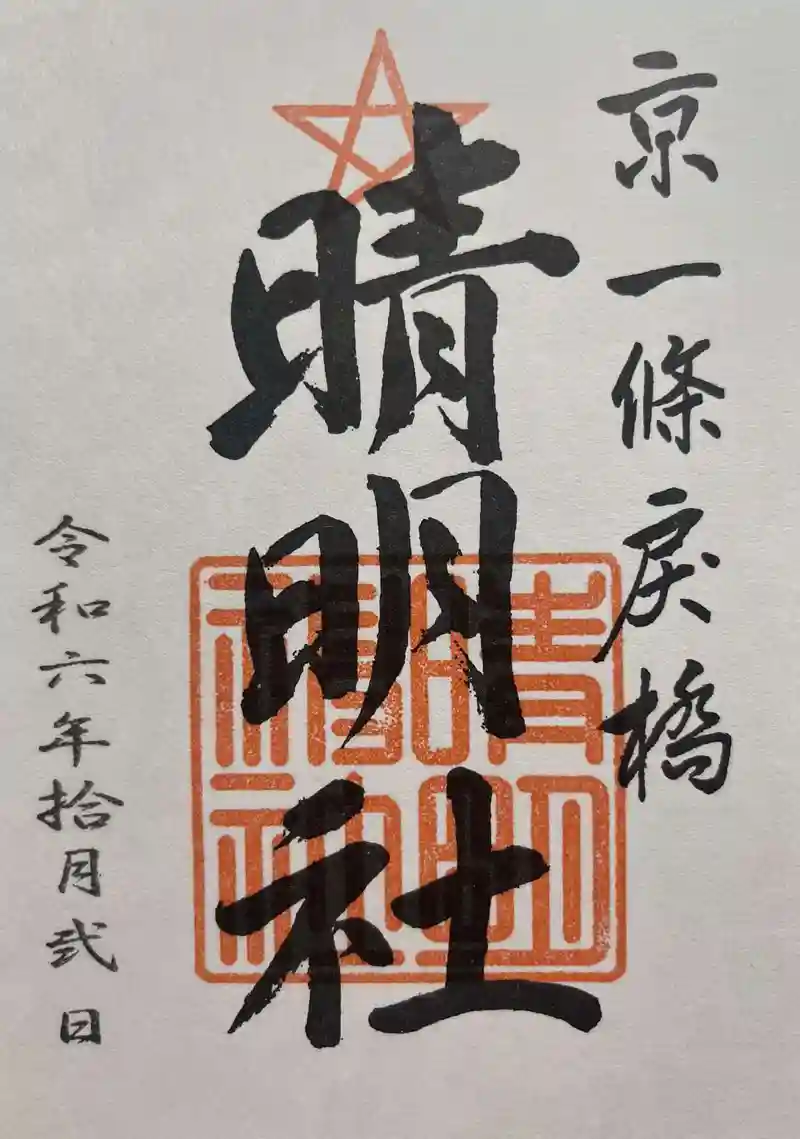 京一條戻橋
晴明社
令和六年拾月弐日